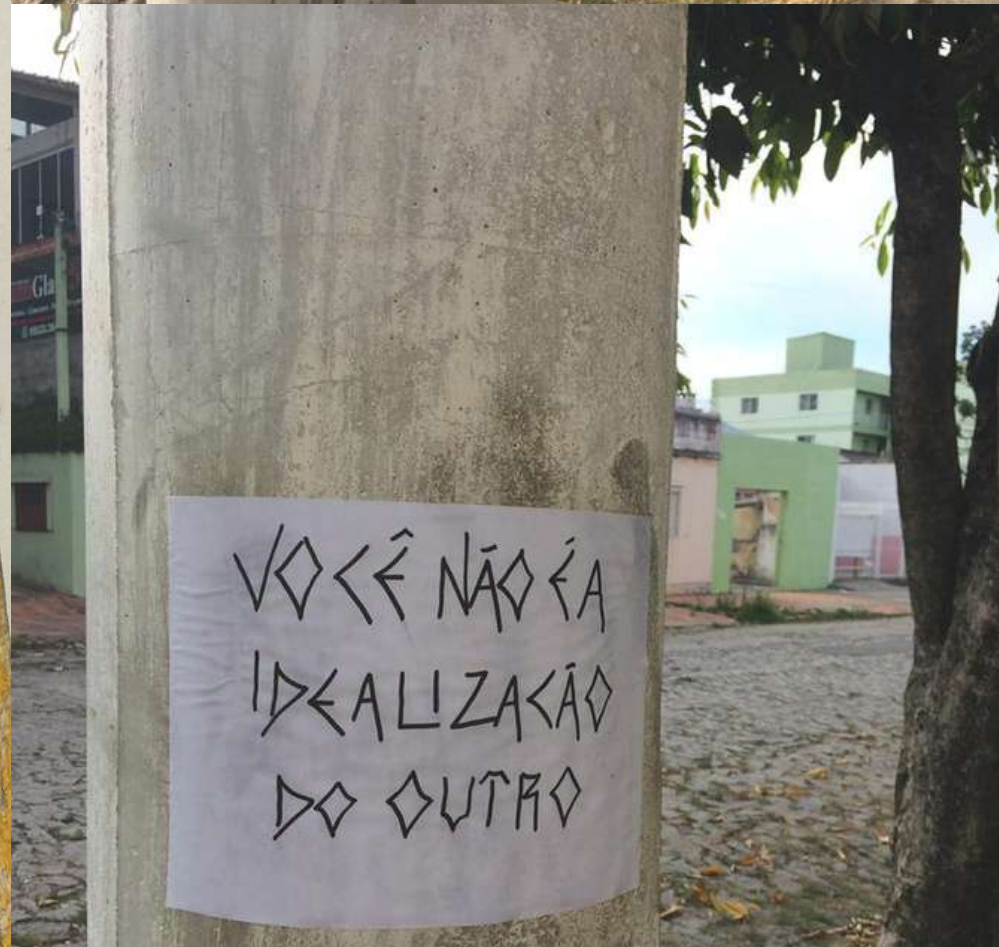 Gla
VOCÊ NÃO É A
IDEALIZACÃO
DO OUTRO